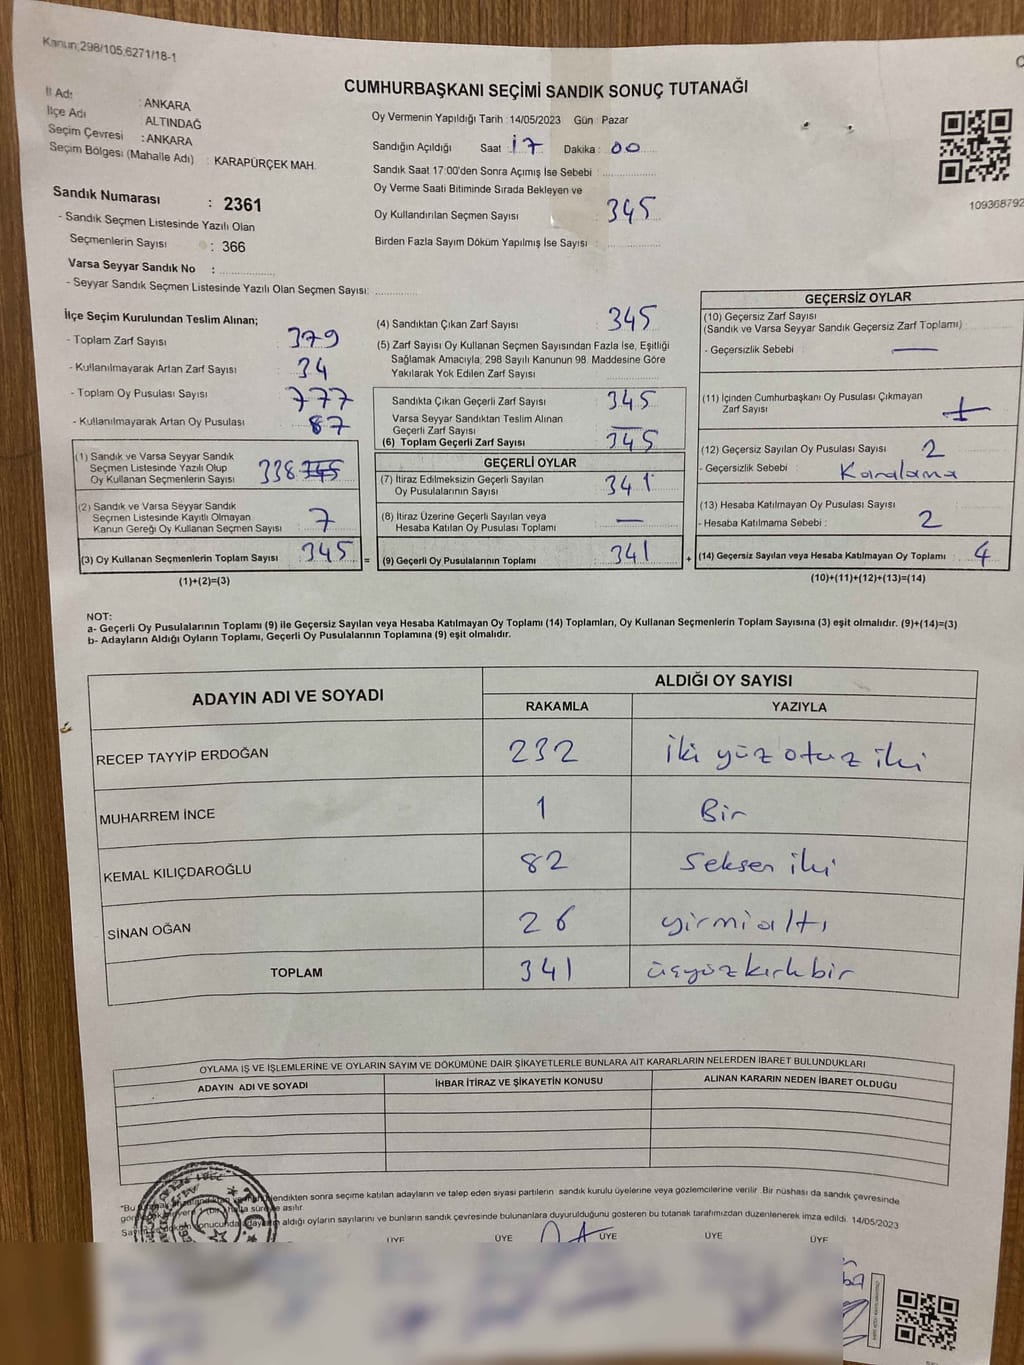 Kanun;298/105,6271/18-1
CUMHURBAŞKANI SEÇİMİ SANDIK SONUÇ TUTANAĞI
İl Adı : ANKARA
İlçe Adı : ALTINDAĞ
Seçim Çevresi : ANKARA
Seçim Bölgesi (Mahalle Adı) : KARAPÜRÇEK MAH.
Sandık Numarası : 2361
- Sandık Seçmen Listesinde Yazılı Olan
Seçmenlerin Sayısı : 366
Varsa Seyyar Sandık No :
- Seyyar Sandık Seçmen Listesinde Yazılı Olan Seçmen Sayısı:
Oy Vermenin Yapıldığı Tarih : 14/05/2023 Gün : Pazar
Sandığın Açıldığı Saat 17 Dakika : 00
Sandık Saat 17:00'den Sonra Açımış İse Sebebi :
Oy Verme Saati Bitiminde Sırada Bekleyen ve
Oy Kullandırılan Seçmen Sayısı : 345
Birden Fazla Sayım Döküm Yapılmış İse Sayısı :
109368792
İlçe Seçim Kurulundan Teslim Alınan;
- Toplam Zarf Sayısı : 379
- Kullanılmayarak Artan Zarf Sayısı : 34
- Toplam Oy Pusulası Sayısı : 777
- Kullanılmayarak Artan Oy Pusulası : 87
(1) Sandık ve Varsa Seyyar Sandık
Seçmen Listesinde Yazılı Olup
Oy Kullanan Seçmenlerin Sayısı : 338 345
(2) Sandık ve Varsa Seyyar Sandık
Seçmen Listesinde Kayıtlı Olmayan
Kanun Gereği Oy Kullanan Seçmen Sayısı : 7
(3) Oy Kullanan Seçmenlerin Toplam Sayısı : 345 =
(1)+(2)=(3)
(4) Sandıktan Çıkan Zarf Sayısı : 345
(5) Zarf Sayısı Oy Kullanan Seçmen Sayısından Fazla İse, Eşitliği
Sağlamak Amacıyla, 298 Sayılı Kanunun 98. Maddesine Göre
Yakılarak Yok Edilen Zarf Sayısı
Sandıkta Çıkan Geçerli Zarf Sayısı : 345
Varsa Seyyar Sandıktan Teslim Alınan
Geçerli Zarf Sayısı : —
(6) Toplam Geçerli Zarf Sayısı : 345
GEÇERLİ OYLAR
(7) İtiraz Edilmeksizin Geçerli Sayılan
Oy Pusulalarının Sayısı : 341
(8) İtiraz Üzerine Geçerli Sayılan veya
Hesaba Katılan Oy Pusulası Toplamı : —
(9) Geçerli Oy Pusulalarının Toplamı : 341 +
GEÇERSİZ OYLAR
(10) Geçersiz Zarf Sayısı
(Sandık ve Varsa Seyyar Sandık Geçersiz Zarf Toplamı) :
- Geçersizlik Sebebi : —
(11) İçinden Cumhurbaşkanı Oy Pusulası Çıkmayan
Zarf Sayısı :
(12) Geçersiz Sayılan Oy Pusulası Sayısı : 2
- Geçersizlik Sebebi : Karalama
(13) Hesaba Katılmayan Oy Pusulası Sayısı
- Hesaba Katılmama Sebebi : 2
(14) Geçersiz Sayılan veya Hesaba Katılmayan Oy Toplamı : 4
(10)+(11)+(12)+(13)=(14)
NOT:
a- Geçerli Oy Pusulalarının Toplamı (9) ile Geçersiz Sayılan veya Hesaba Katılmayan Oy Toplamı (14) Toplamları, Oy Kullanan Seçmenlerin Toplam Sayısına (3) eşit olmalıdır. (9)+(14)=(3)
b- Adayların Aldığı Oyların Toplamı, Geçerli Oy Pusulalarının Toplamına (9) eşit olmalıdır.
ADAYIN ADI VE SOYADI
ALDIĞI OY SAYISI
RAKAMLA YAZIYLA
RECEP TAYYİP ERDOĞAN 232 iki yüz otuz iki
MUHARREM İNCE 1 Bir
KEMAL KILIÇDAROĞLU 82 Seksen iki
SİNAN OĞAN 26 yirmialtı
TOPLAM 341 üçyüzkırkbir
OYLAMA İŞ VE İŞLEMLERİNE VE OYLARIN SAYIM VE DÖKÜMÜNE DAİR ŞİKAYETLERLE BUNLARA AİT KARARLARIN NELERDEN İBARET BULUNDUKLARI
ADAYIN ADI VE SOYADI İHBAR İTİRAZ VE ŞİKAYETİN KONUSU ALINAN KARARIN NEDEN İBARET OLDUĞU
"Bu lendikten sonra seçime katılan adayların ve talep eden siyasi partilerin sandık kurulu üyelerine veya gözlemcilerine verilir .Bir nüshası da sandık çevresinde
süreyle asılır.
aldığı oyların sayılarını ve bunların sandık çevresinde bulunanlara duyurulduğunu gösteren bu tutanak tarafımızdan düzenlenerek imza edildi. 14/05/2023
ÜYE ÜYE ÜYE ÜYE ÜYE